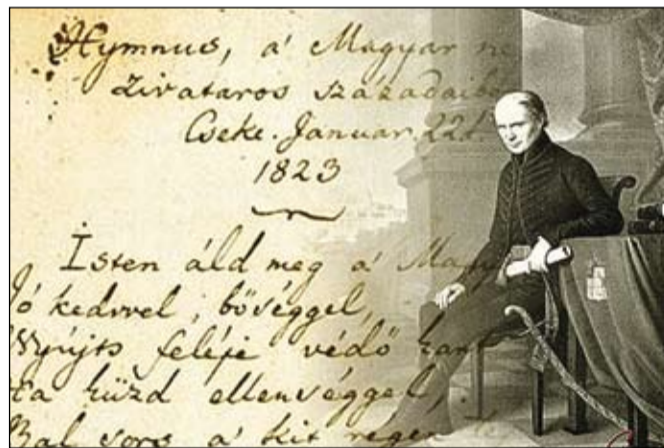 Hymnus, a' Magyar
zivataros századaib
Cseke. Januar. 22d.
1823
Isten áld meg a' Magy
Jó kedvvel, bőséggel,
Nyújts feléje védő kart
Ha küzd ellenséggel,
Bal sors a' kit régen